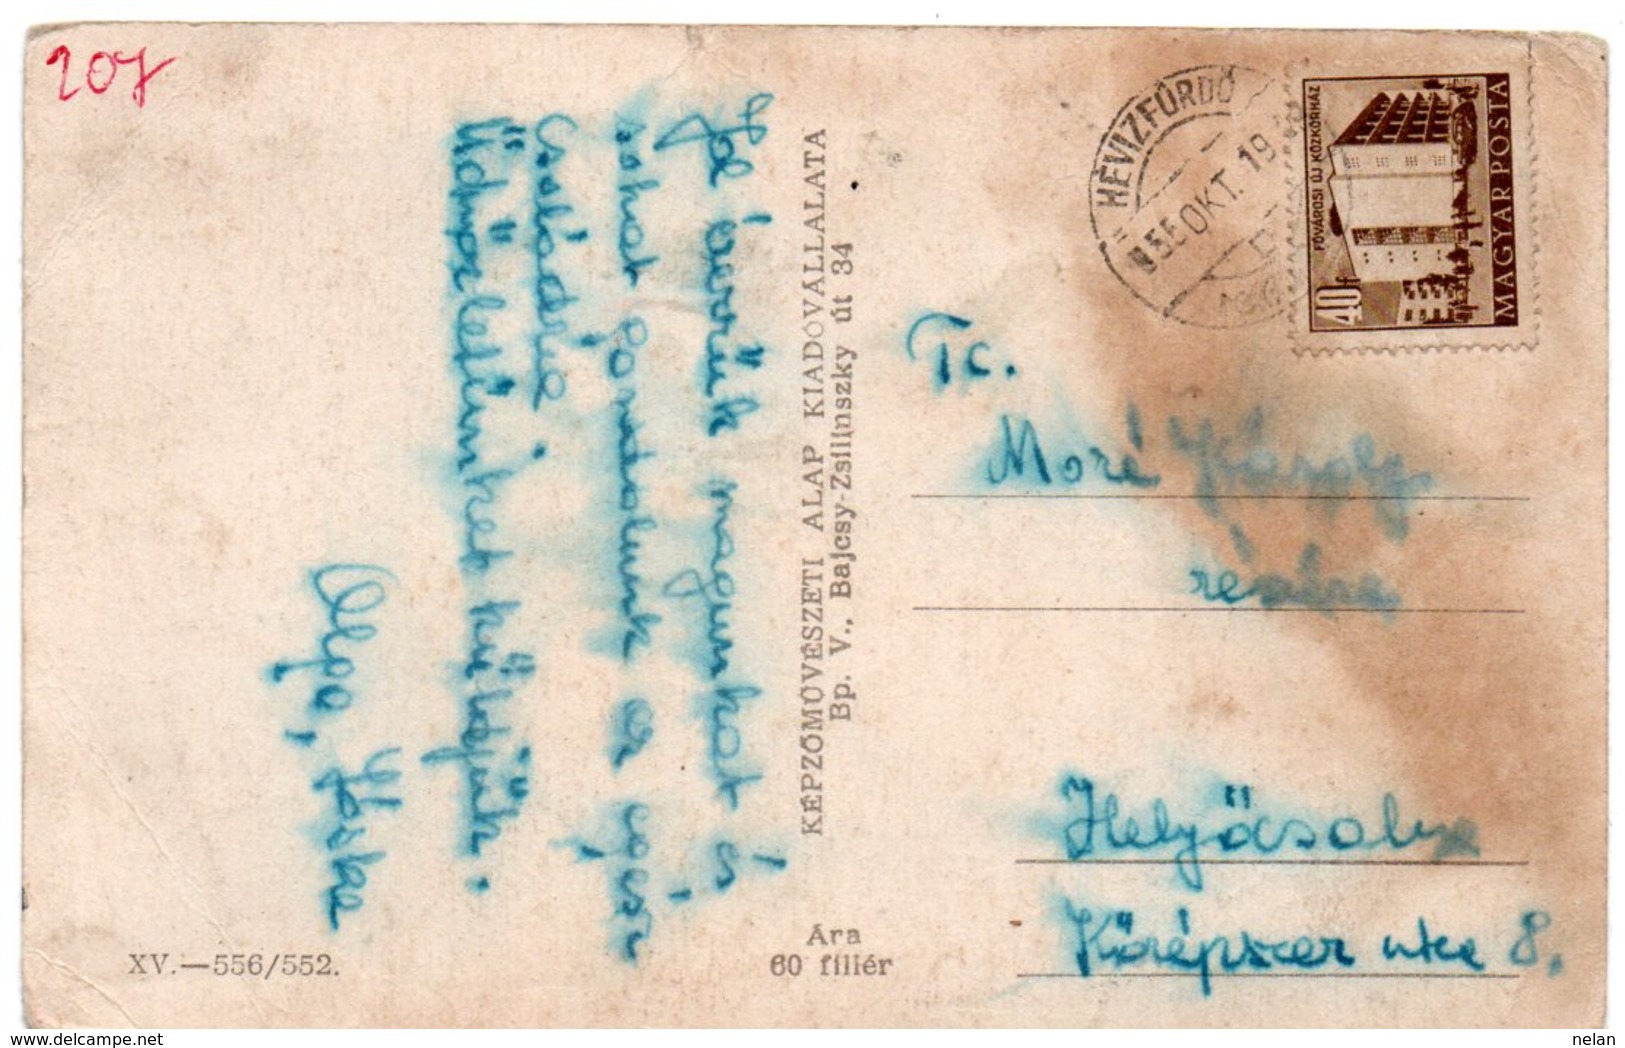 207
Jól érezzük magunkat és
sokat gondolunk az egész
családra
Üdvözletünket küldjük.
Olga, Jóska
XV.—556/552.
KÉPZŐMŰVÉSZETI ALAP KIADÓVÁLLALATA
Bp. V., Bajcsy-Zsilinszky út 34
Ára
60 fillér
HÉVIZFÜRDŐ
955 OKT. 19
FŐVÁROSI ÚJ KÖZKÓRHÁZ
40f
MAGYAR POSTA
Tc.
Moré Károly
részére
Középszer utca 8.
delcampe.net
nelan